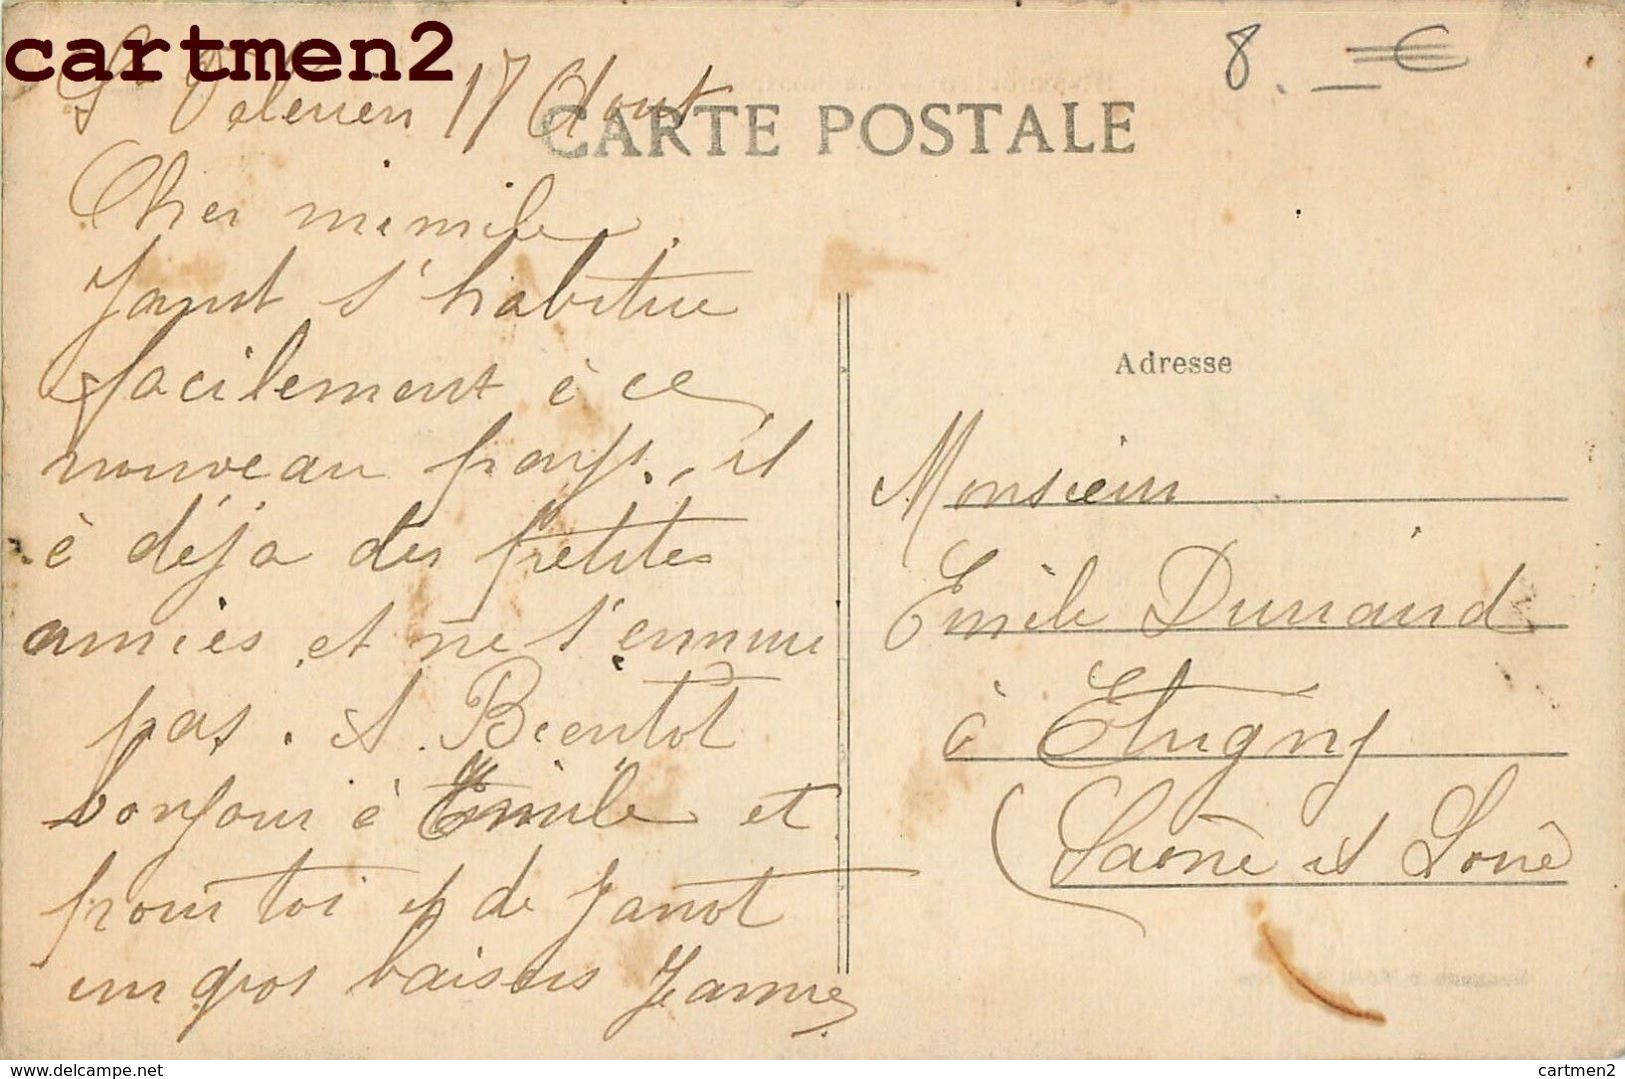 cartmen2
St Valerien 17 Aout
8. — €
CARTE POSTALE
Cher mimile
Janot s'habitue
facilement à ce
nouveau pays, il
à déja des petites
amies et ne s'ennuie
pas. A Bientot
bonjour à Emile et
pour toi et de Janot
un gros baisers Jeanne
Adresse
Monsieur
Emile Dunand
à Etrigny
(Saône et Loire
www.delcampe.net
cartmen2